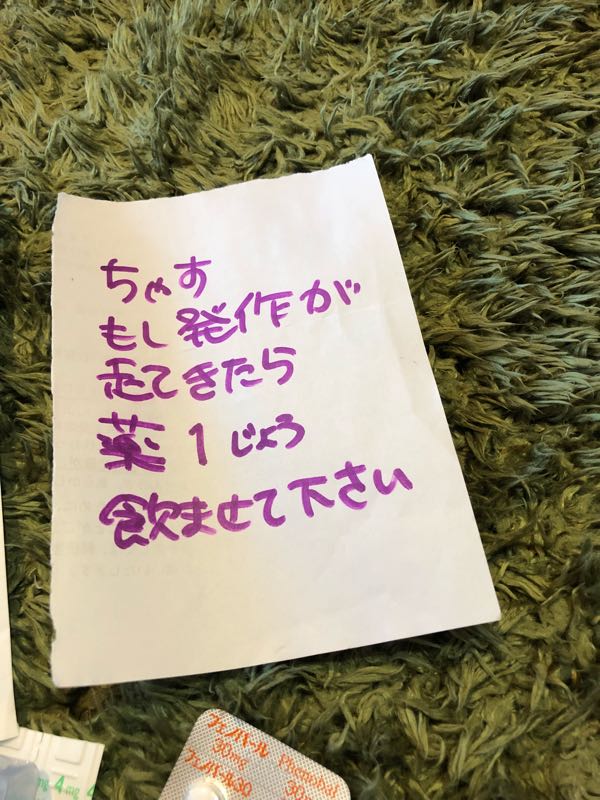 ちゃす
もし発作が
起てきたら
薬1じょう
飲ませて下さい
フェノバール
30mg
フェノバール30
Phenobal
30
mg 4mg 4